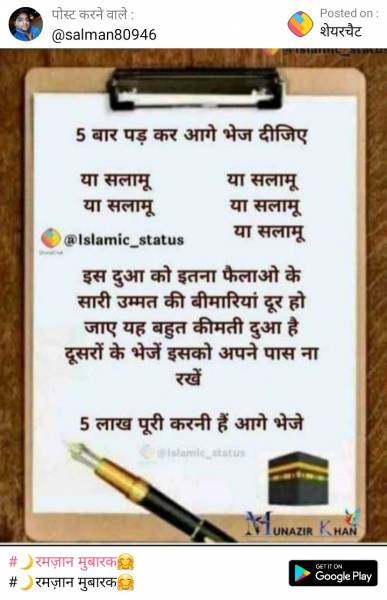 पोस्ट करने वाले :
@salman80946
Posted on :
शेयरचैट
5 बार पड़ कर आगे भेज दीजिए
या सलामू या सलामू
या सलामू या सलामू
@Islamic_status या सलामू
ShareChat
इस दुआ को इतना फैलाओ के
सारी उम्मत की बीमारियां दूर हो
जाए यह बहुत कीमती दुआ है
दूसरों के भेजें इसको अपने पास ना
रखें
5 लाख पूरी करनी हैं आगे भेजे
@islamic_status
MUNAZIR KHAN
#🌙रमज़ान मुबारक🤗
#🌙रमज़ान मुबारक🤗
GET IT ON
Google Play